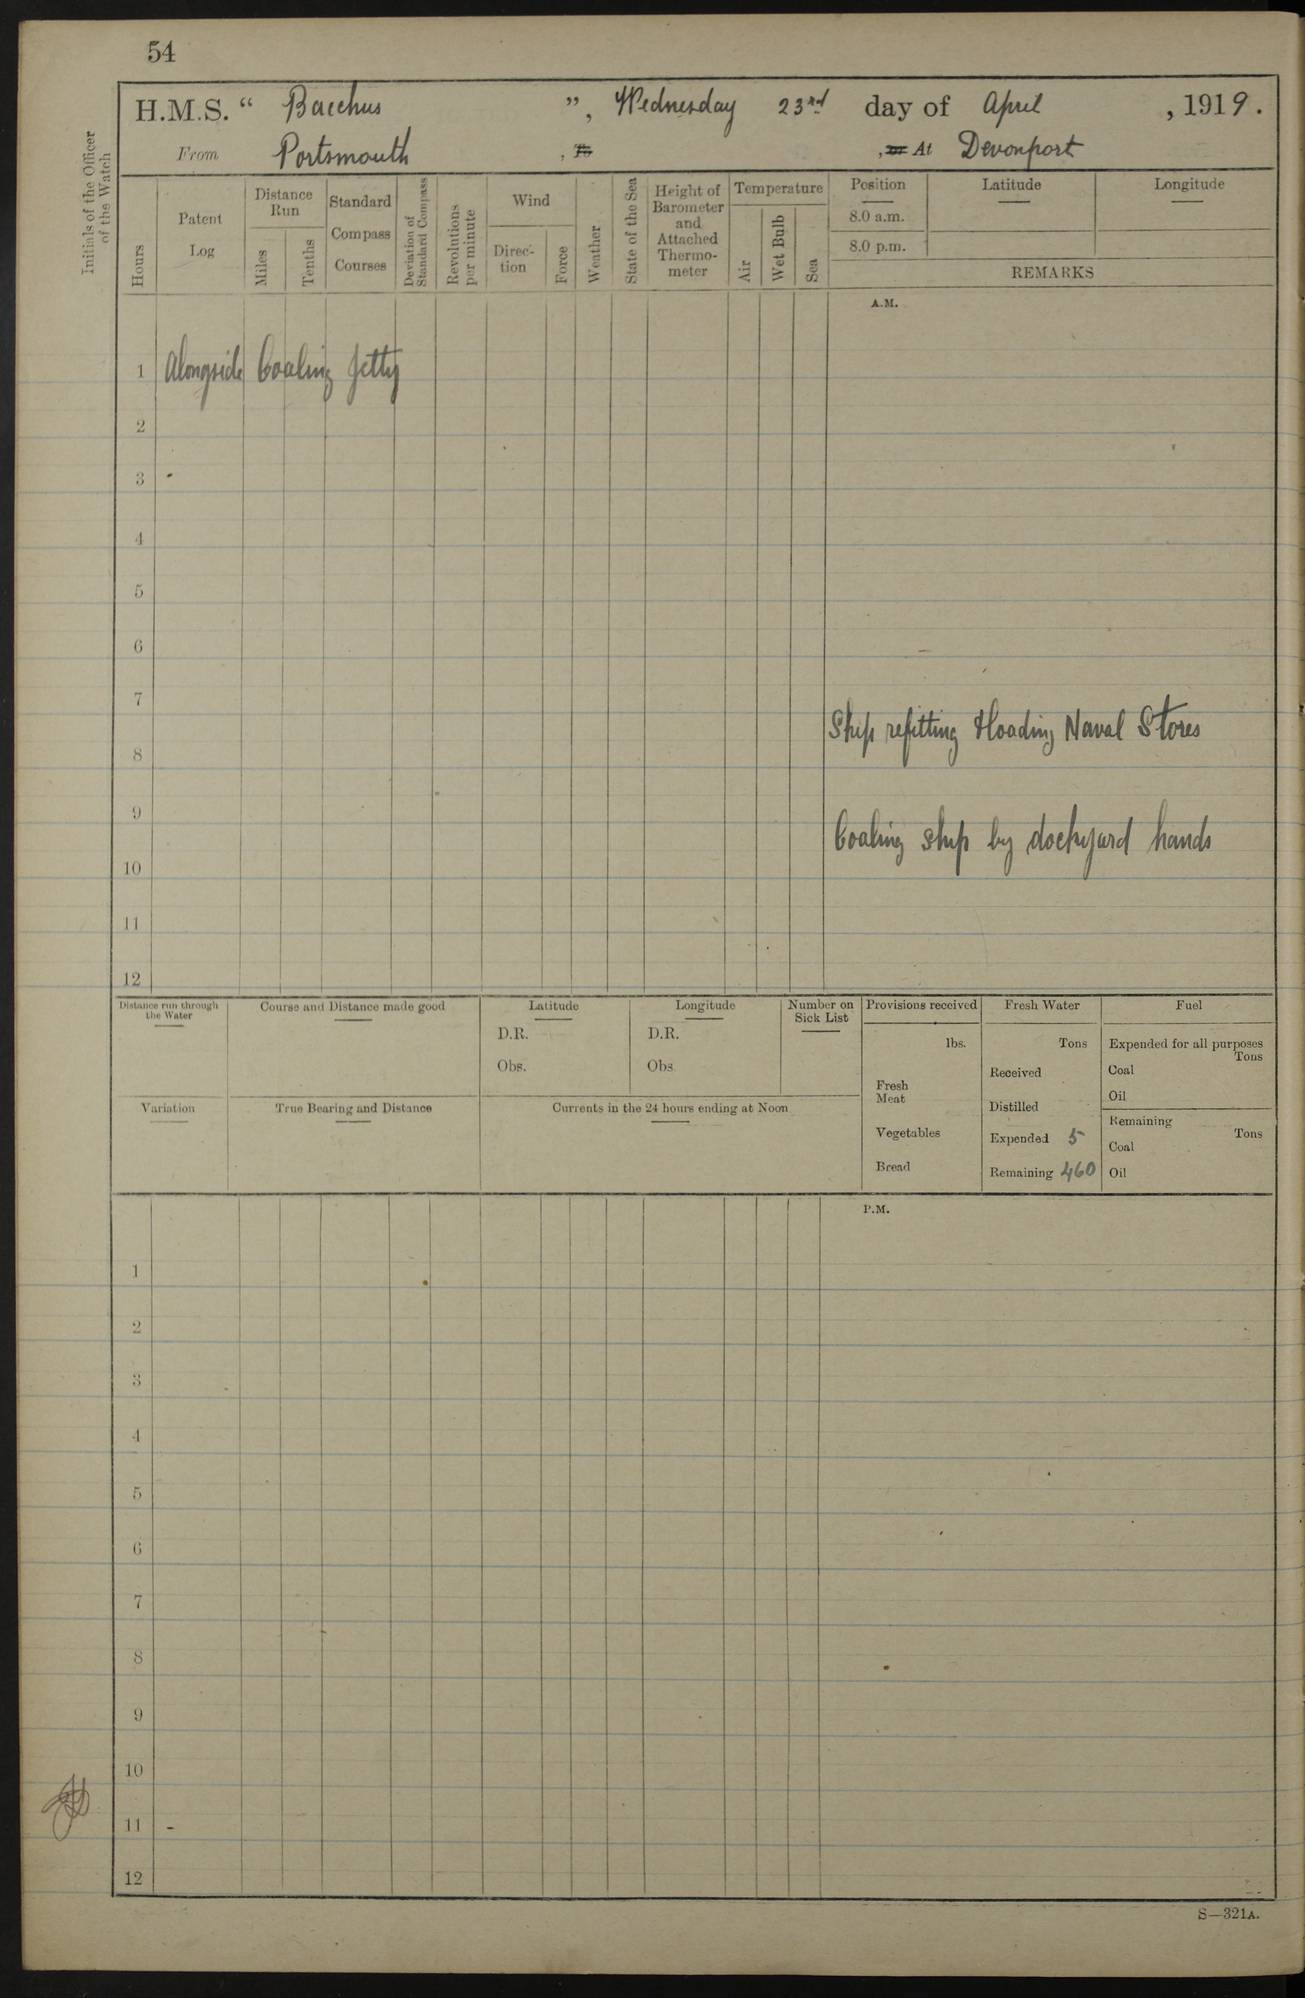 54
H.M.S. “ Bacchus ”, Wednesday 23rd day of April , 1919.
From Portsmouth , To , or At Devonport
Initials of the Officer of the Watch
Hours
Patent Log
Distance Run
Miles
Tenths
Standard Compass Courses
Deviation of Standard Compass
Revolutions per minute
Wind
Direc-tion
Force
Weather
State of the Sea
Height of Barometer and Attached Thermo-meter
Temperature
Air
Wet Bulb
Sea
Position
Latitude
Longitude
8.0 a.m.
8.0 p.m.
REMARKS
A.M.
1 Alongside Coaling Jetty
2
3
4
5
6
7
Ship refitting & loading Naval Stores
8
9
Coaling ship by dockyard hands
10
11
12
Distance run through the Water
Course and Distance made good
Latitude
D.R.
Obs.
Longitude
D.R.
Obs
Number on Sick List
Provisions received
lbs.
Fresh Meat
Vegetables
Bread
Fresh Water
Tons
Received
Distilled
Expended 5
Remaining 460
Fuel
Expended for all purposes
Tons
Coal
Oil
Remaining
Tons
Coal
Oil
Variation
True Bearing and Distance
Currents in the 24 hours ending at Noon
P.M.
1
2
3
4
5
6
7
8
9
10
11
12
S—321A.